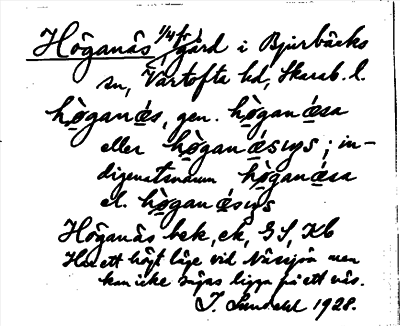 Höganäs 1/4 fr, gård i Bjurbäcks
sn, Vartofta hd, Skarab. l.
hò̱ganǽs, gen. hò̱ganǽsa
eller hò̱ganǽsɩɣs; in-
digenatsnamn hò̱ganǽsa
el. hò̱ganǽsɩɣs
Höganäs bek, ek, GS, Kb
Har ett högt läge vid Nässjön men
kan icke sägas ligga på ett näs.
J. 1928.